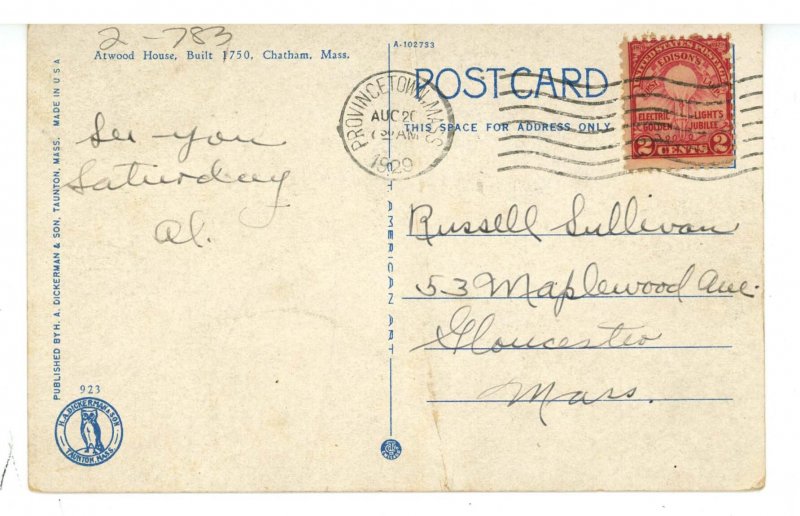 2-783
Atwood House, Built 1750, Chatham, Mass.
A-102733
POST CARD
THIS SPACE FOR ADDRESS ONLY
PROVINCETOWN, MASS
AUG 20
7 30 AM
1929
UNITED STATES POSTAGE
EDISON'S
FIRST LAMP
ELECTRIC LIGHT'S
GOLDEN JUBILEE
2 CENTS 2
See you
Saturday
Al.
Russell Sullivan
53 Maplewood Ave.
Gloucester
Mass.
AMERICAN ART
PUBLISHED BY H. A. DICKERMAN & SON, TAUNTON, MASS. MADE IN U S A
923
H.A. DICKERMAN & SON
TAUNTON, MASS.